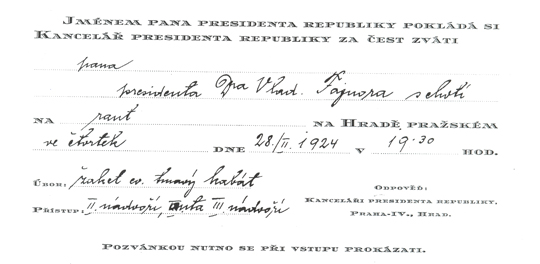 Jménem pana presidenta republiky pokládá si
Kancelář presidenta republiky za čest zváti
pana
presidenta Dra Vlad. Fajnora s chotí
na raut na Hradě pražském
ve čtvrtek dne 28./II. 1924 v 19·30 hod.
Úbor: žaket ev. tmavý kabát
Přístup: II. nádvoří, III nádvoří
Odpověď:
Kanceláři presidenta republiky.
Praha-IV., Hrad.
Pozvánkou nutno se při vstupu prokázati.